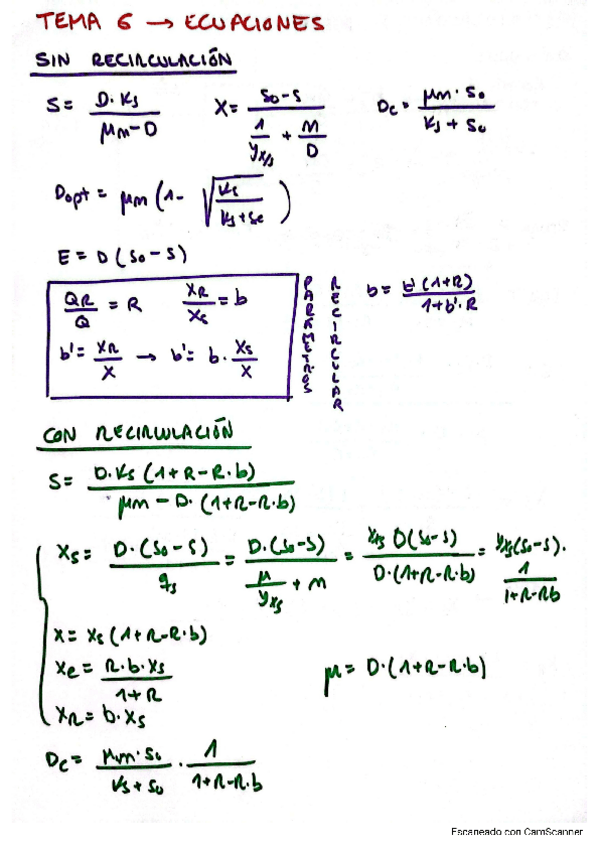 TEMA 6 → ECUACIONES
SIN RECIRCULACIÓN
S = D·Ks / μm - D    X = S0 - S / (1/Yx/s + m/D)    Dc = μm·S0 / Ks + S0
Dopt = μm (1 - √(Ks / Ks + Se))
E = D (S0 - S)
QR/Q = R    XR/Xs = b
b' = XR/X → b' = b · Xs/X
PARÁMETROS
RECIRCULAR
b = b'(1+R) / 1+b'·R
CON RECIRCULACIÓN
S = D·Ks (1+R-R·b) / μm - D·(1+R-R·b)
Xs = D·(S0-S) / qs = D·(S0-S) / (μ/Yxs + m) = Yxs D(S0-S) / D·(1+R-R·b) = Yxs(S0-S)· 1 / 1+R-Rb
X = Xs (1+R-R·b)
Xe = R·b·Xs / 1+R    μ = D·(1+R-R·b)
XR = b·Xs
Dc = μm·S0 / Ks + S0 · 1 / 1+R-R·b
Escaneado con CamScanner